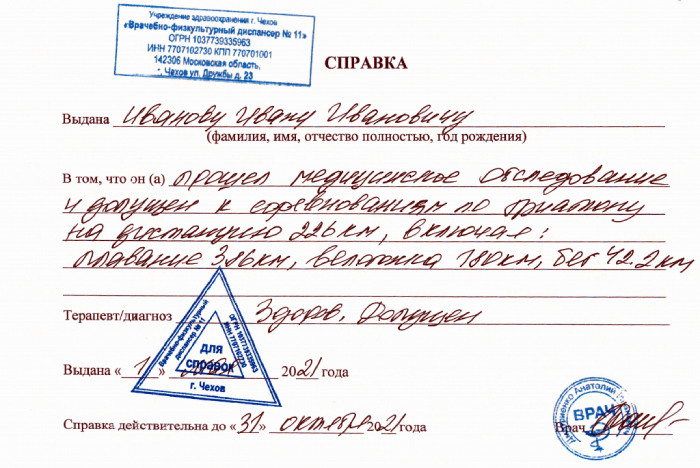 Учреждение здравоохранения г. Чехов
«Врачебно-физкультурный диспансер № 11»
ОГРН 1037739335963
ИНН 7707102730 КПП 770701001
142306 Московская область,
г. Чехов ул. Дружбы д. 23
СПРАВКА
Выдана Иванову Ивану Ивановичу
(фамилия, имя, отчество полностью, год рождения)
В том, что он (а) прошел медицинское обследование
и допущен к соревнованиям по триатлону
на дистанцию 226 км, включая:
плавание 3,86км, велогонка 180км, бег 42.2км
Терапевт/диагноз Здоров, Допущен
Врачебно-физкультурный диспансер № 11
ОГРН 1037739335963
ИНН 7707102730
для
справок
г. Чехов
Выдана « 1 » 2021 года
Справка действительна до «31» октября 2021 года
Врач
Анатолий
ВРАЧ